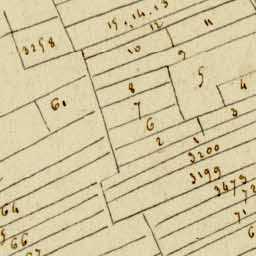 15. 14. 13
12
11
3258
10
9
5
8
4
61
7
3
6
2
1
3200
3199
3473
72
71
64
66